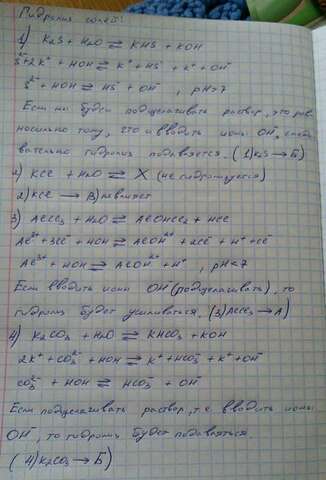 Гидролиз солей:
1) K₂S + H₂O ⇄ KHS + KOH
S²⁻ + 2K⁺ + HOH ⇄ K⁺ + HS⁻ + K⁺ + OH⁻
S²⁻ + HOH ⇄ HS⁻ + OH⁻ , pH>7
Если мы будем подщелачивать раствор, это рав-
носильно тому, что и вводить ионы OH⁻, следо-
вательно гидролиз подавляется. (1) K₂S → Б)
2) KCl + H₂O ⇄ X (не гидролизуется)
2) KCl → В) не влияет
3) AlCl₃ + H₂O ⇄ AlOHCl₂ + HCl
Al³⁺ + 3Cl⁻ + HOH ⇄ AlOH²⁺ + 2Cl⁻ + H⁺ + Cl⁻
Al³⁺ + HOH ⇄ AlOH²⁺ + H⁺ , pH<7
Если вводить ионы OH⁻ (подщелачивать), то
гидролиз будет усиливаться. (3) AlCl₃ → А)
4) K₂CO₃ + H₂O ⇄ KHCO₃ + KOH
2K⁺ + CO₃²⁻ + HOH ⇄ K⁺ + HCO₃⁻ + K⁺ + OH⁻
CO₃²⁻ + HOH ⇄ HCO₃⁻ + OH⁻
Если подщелачивать раствор, т.е. вводить ионы
OH⁻, то гидролиз будет подавляться.
(4) K₂CO₃ → Б)